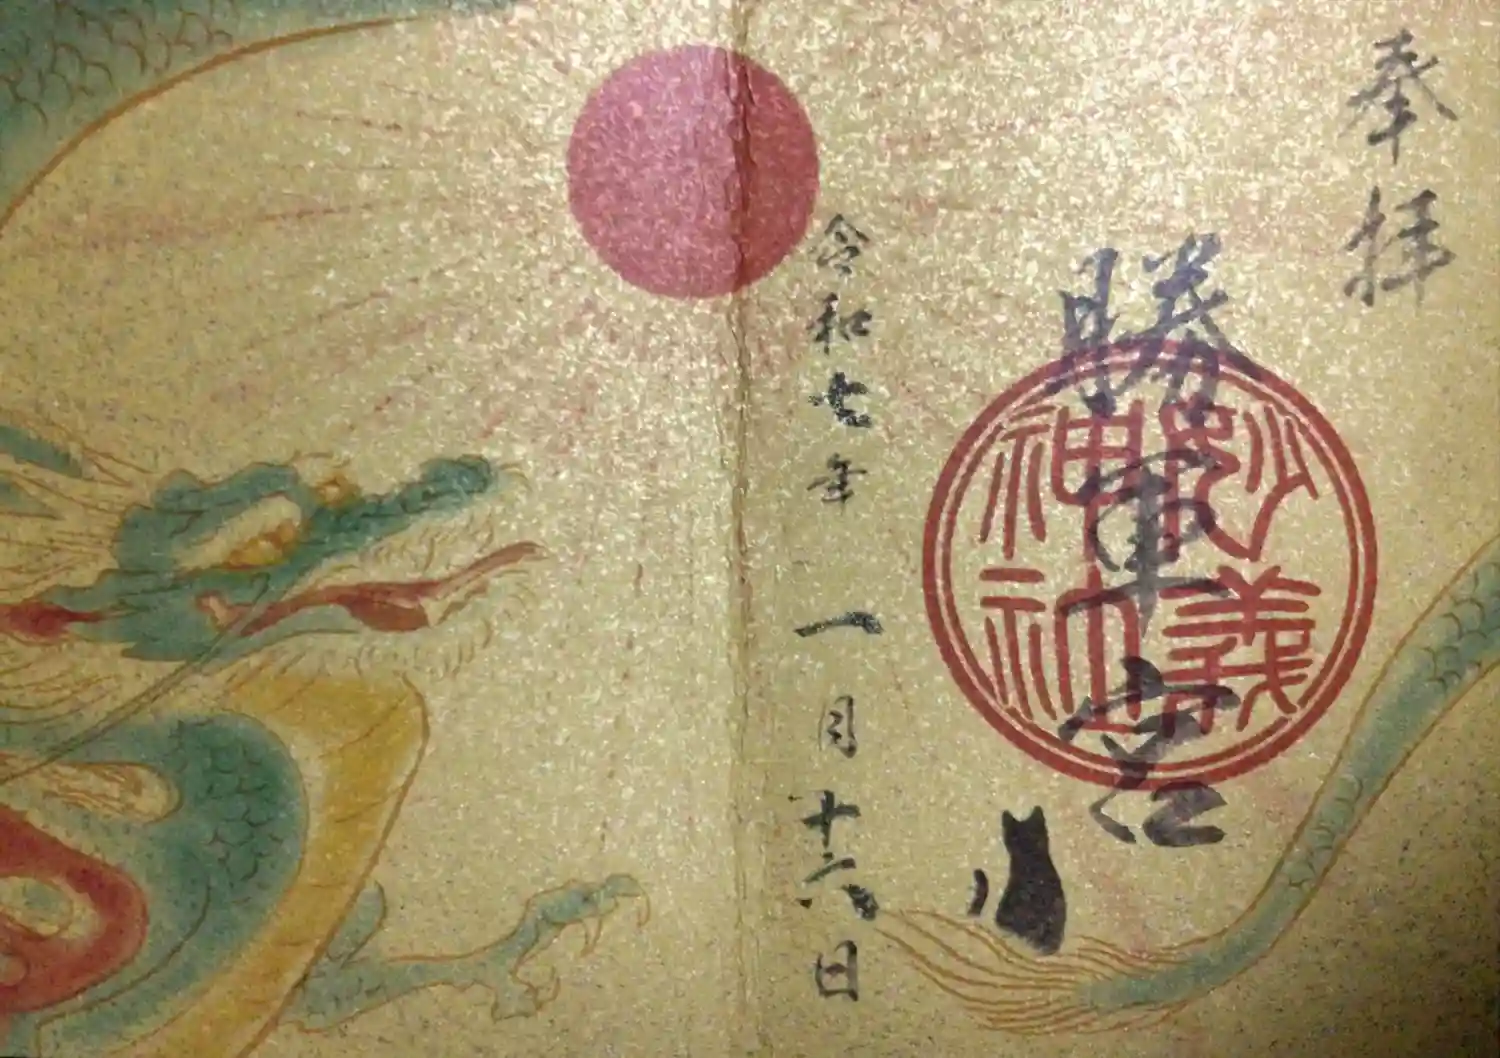 奉拝
勝軍宮
妙義
神社
令和七年一月十六日